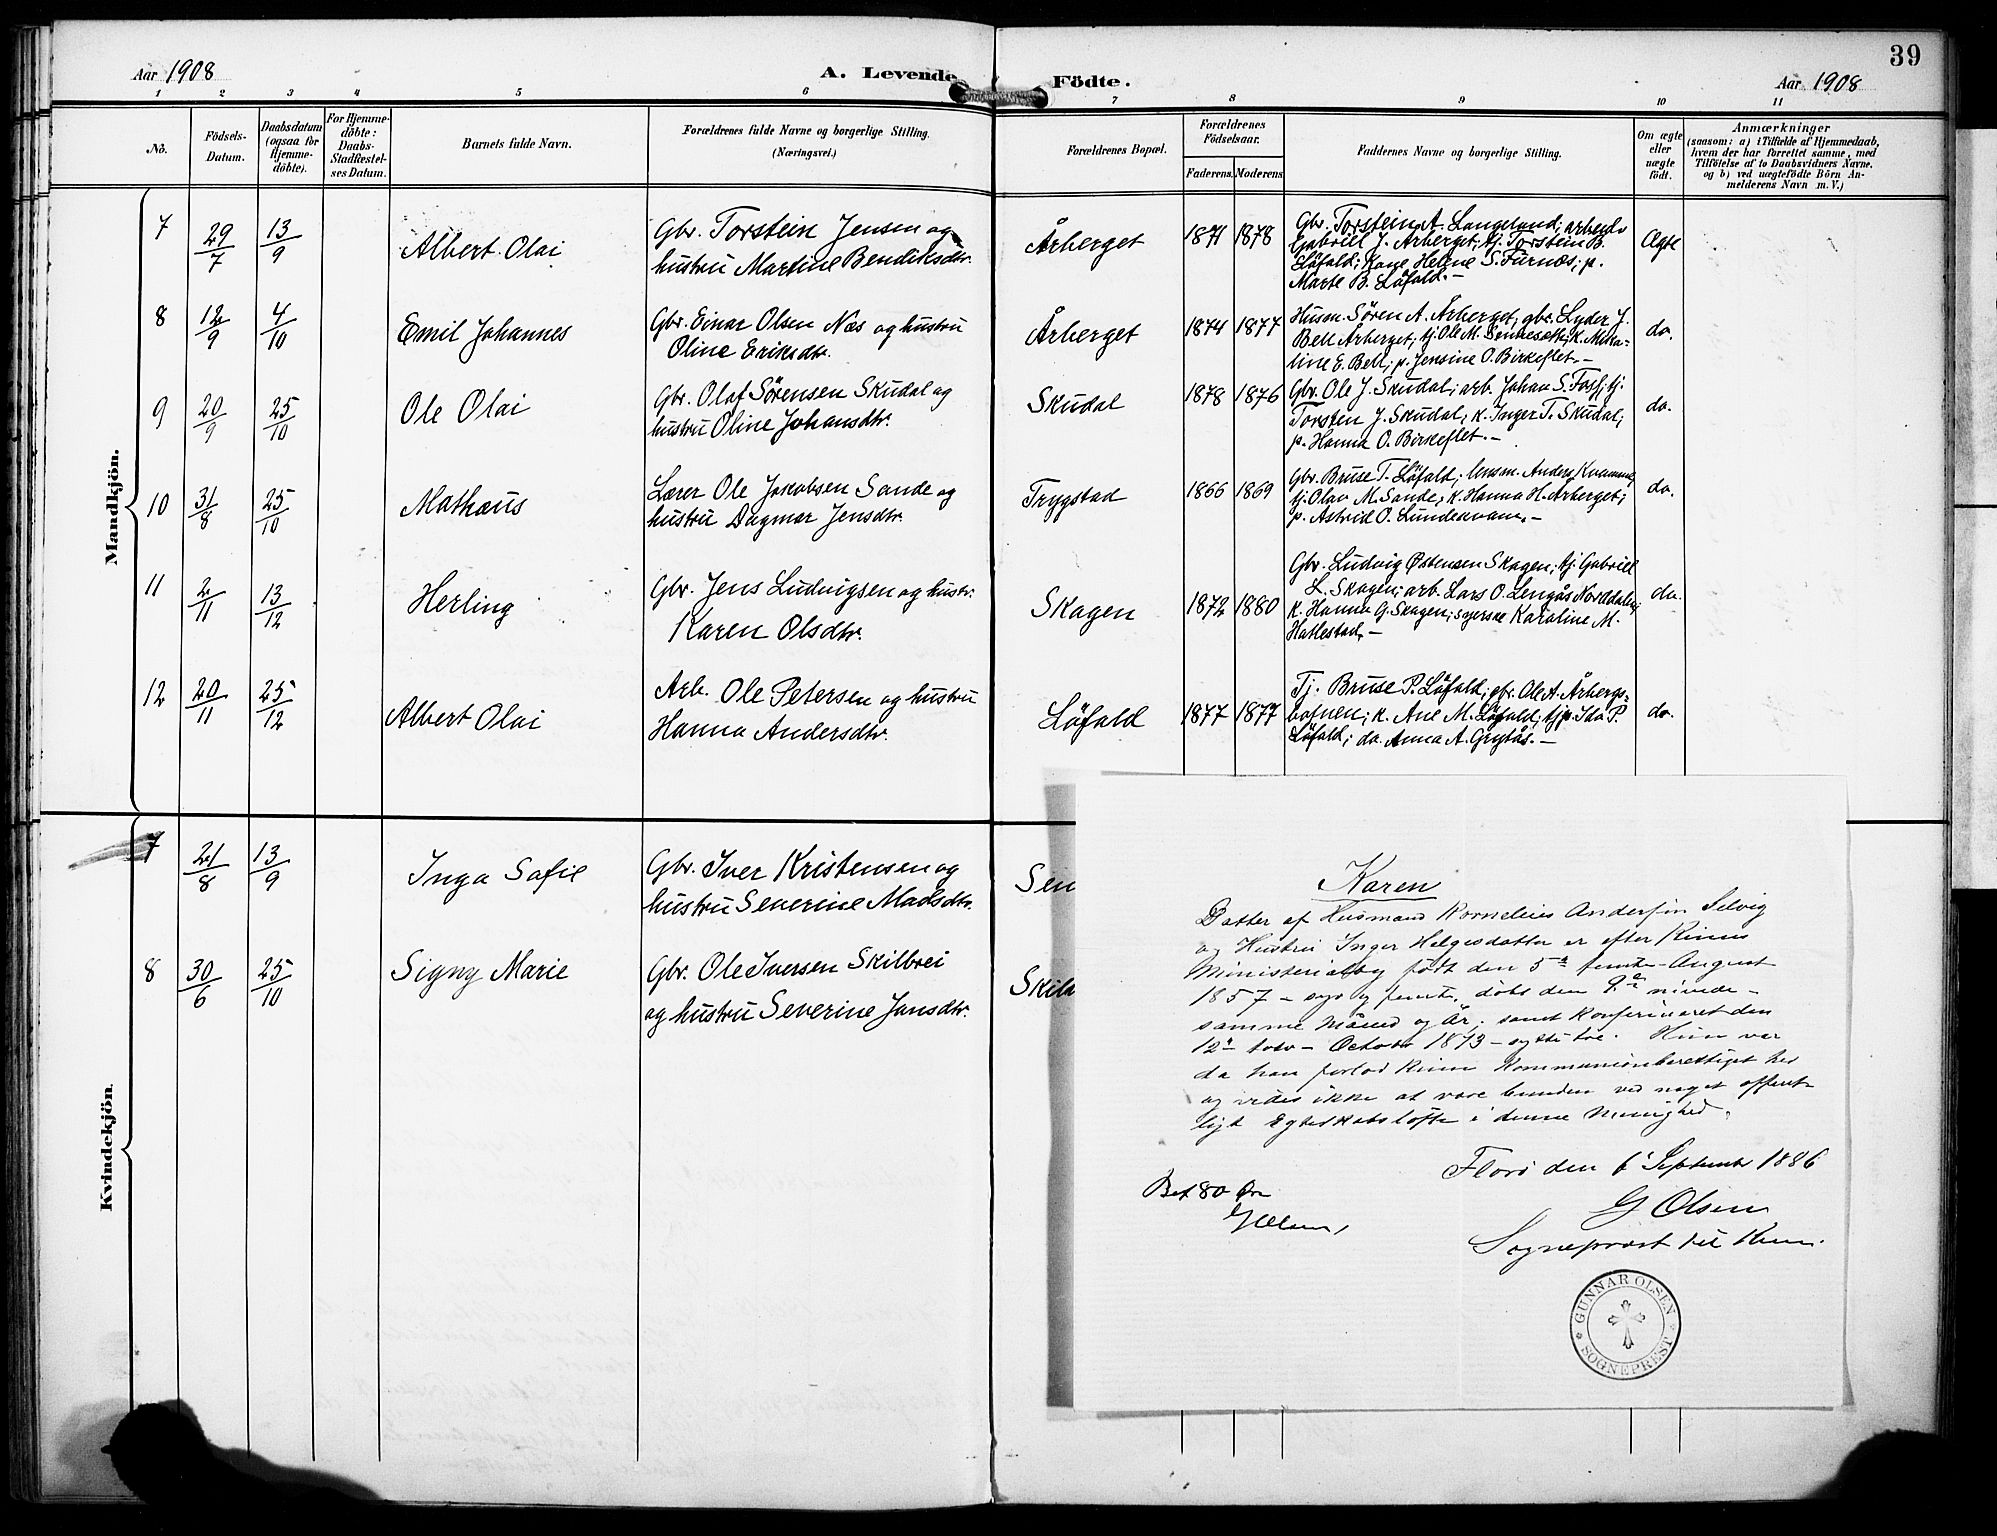 39
Aar 1908
A. Levende Födte.
Aar 1908
1 2 3 4 5 6 7 8 9 10 11
No.
Födsels-
Datum.
Daabsdatum
(ogsaa for
Hjemme-
döbte).
For Hjemme-
döbte:
Daabs-
Stadfæstel-
ses Datum.
Barnets fulde Navn.
Forældrenes fulde Navne og borgerlige Stilling.
(Næringsvei.)
Forældrenes Bopæl.
Forældrenes
Födselsaar.
Faderens. Moderens
Faddernes Navne og borgerlige Stilling.
Om ægte
eller
uægte
födt.
Anmærkninger
(saasom: a) i Tilfælde af Hjemmedaab,
hvem der har forrettet samme, med
Tilföielse af to Daabsvidners Navne.
og b) ved uægtefödte Börn An-
melderens Navn m. V.)
Mandkjön.
7 29/7 13/9 Albert Olai
Gbr. Torstein Jensen og
hustru Martine Bendiksdtr.
Årberget 1871 1878
Gbr. Torstein A. Langeland; arbeids
Gabriel J. Årberget; tj. Torstein B.
Löfald; Kone Helene S. Furnæs; p.
Marte B. Löfald.-
Ægte
8 12/9 4/10 Emil Johannes
Gbr. Einar Olsen Næs og hustru
Oline Eriksdtr.
Årberget 1874 1877
Husm. Sören A. Årberget, gbr. Lyder J.
Bell Årberget; tj. Ole M. Sennesæth; K. Mika-
line E. Bell; p. Jensine O. Birkeflet.-
do.
9 20/9 25/10 Ole Olai
Gbr. Olaf Sørensen Skudal og
hustru Oline Johansdtr.
Skudal 1878 1876
Gbr. Ole J. Skudal; arb. Johan S. Foss; tj.
Torsten J. Skudal; K. Inger T. Skudal;
p. Hanna O. Birkeflet.-
do.
10 31/8 25/10 Mathæus
Lærer Ole Jacobsen Sande og
hustru Dagmar Jensdtr.
Trygstad 1866 1869
Gbr. Bruse T. Löfald; Anders Kvamme,
tj. Olav M. Sande; K. Hanna H. Årberget;
p. Astrid O. Lundekvam.-
do.
11 2/11 13/12 Herling
Gbr. Jens Ludvigsen og hustr.
Karen Olsdtr.
Skagen 1872 1880
Gbr. Ludvig Østensen Skagen; tj. Gabriel
L. Skagen; arb. Lars O. Lengås Norddalen;
K. Hanna G. Skagen; syerske Karoline M.
Hatlestad.-
do.
12 20/11 25/12 Albert Olai
Arb. Ole Petersen og hustru
Hanna Andersdtr.
Löfald 1877 1877
Tj. Bruse P. Löfald; Ole A. Årbergs-
botnen; K. Ane M. Löfald; tjp. Ida P.
Löfald; do. Anna A. Grytås.-
do.
Kvindekjön.
7 21/8 13/9 Inga Sofie
Gbr. Iver Kristensen og
hustru Severine Madsdtr.
Sen
8 30/6 25/10 Signy Marie
Gbr. Ole Iversen Skilbrei
og hustru Severine Jansdtr.
Skilb
Karen
Datter af Husmand Kornelius Andersen Selvig
og Hustru Inger Helgesdatter er efter Kinns
Ministerialbog født den 5te femte August
1857 - syv og femti, døbt den 9de niende -
samme Måned og År, samt konfirmeret den
12te tolv - October 1873 - sytti tre. Hun var
da hun forlod Kinn Kommunionberettiget her
og vides ikke at være bunden ved noget offent-
ligt Egteskabsløfte i denne Menighed.
Florø den 6 September 1886
G Olsen
Sogneprest til Kinn.
Bet 80 Øre
GOlsen,
GUNNAR OLSEN
SOGNEPREST